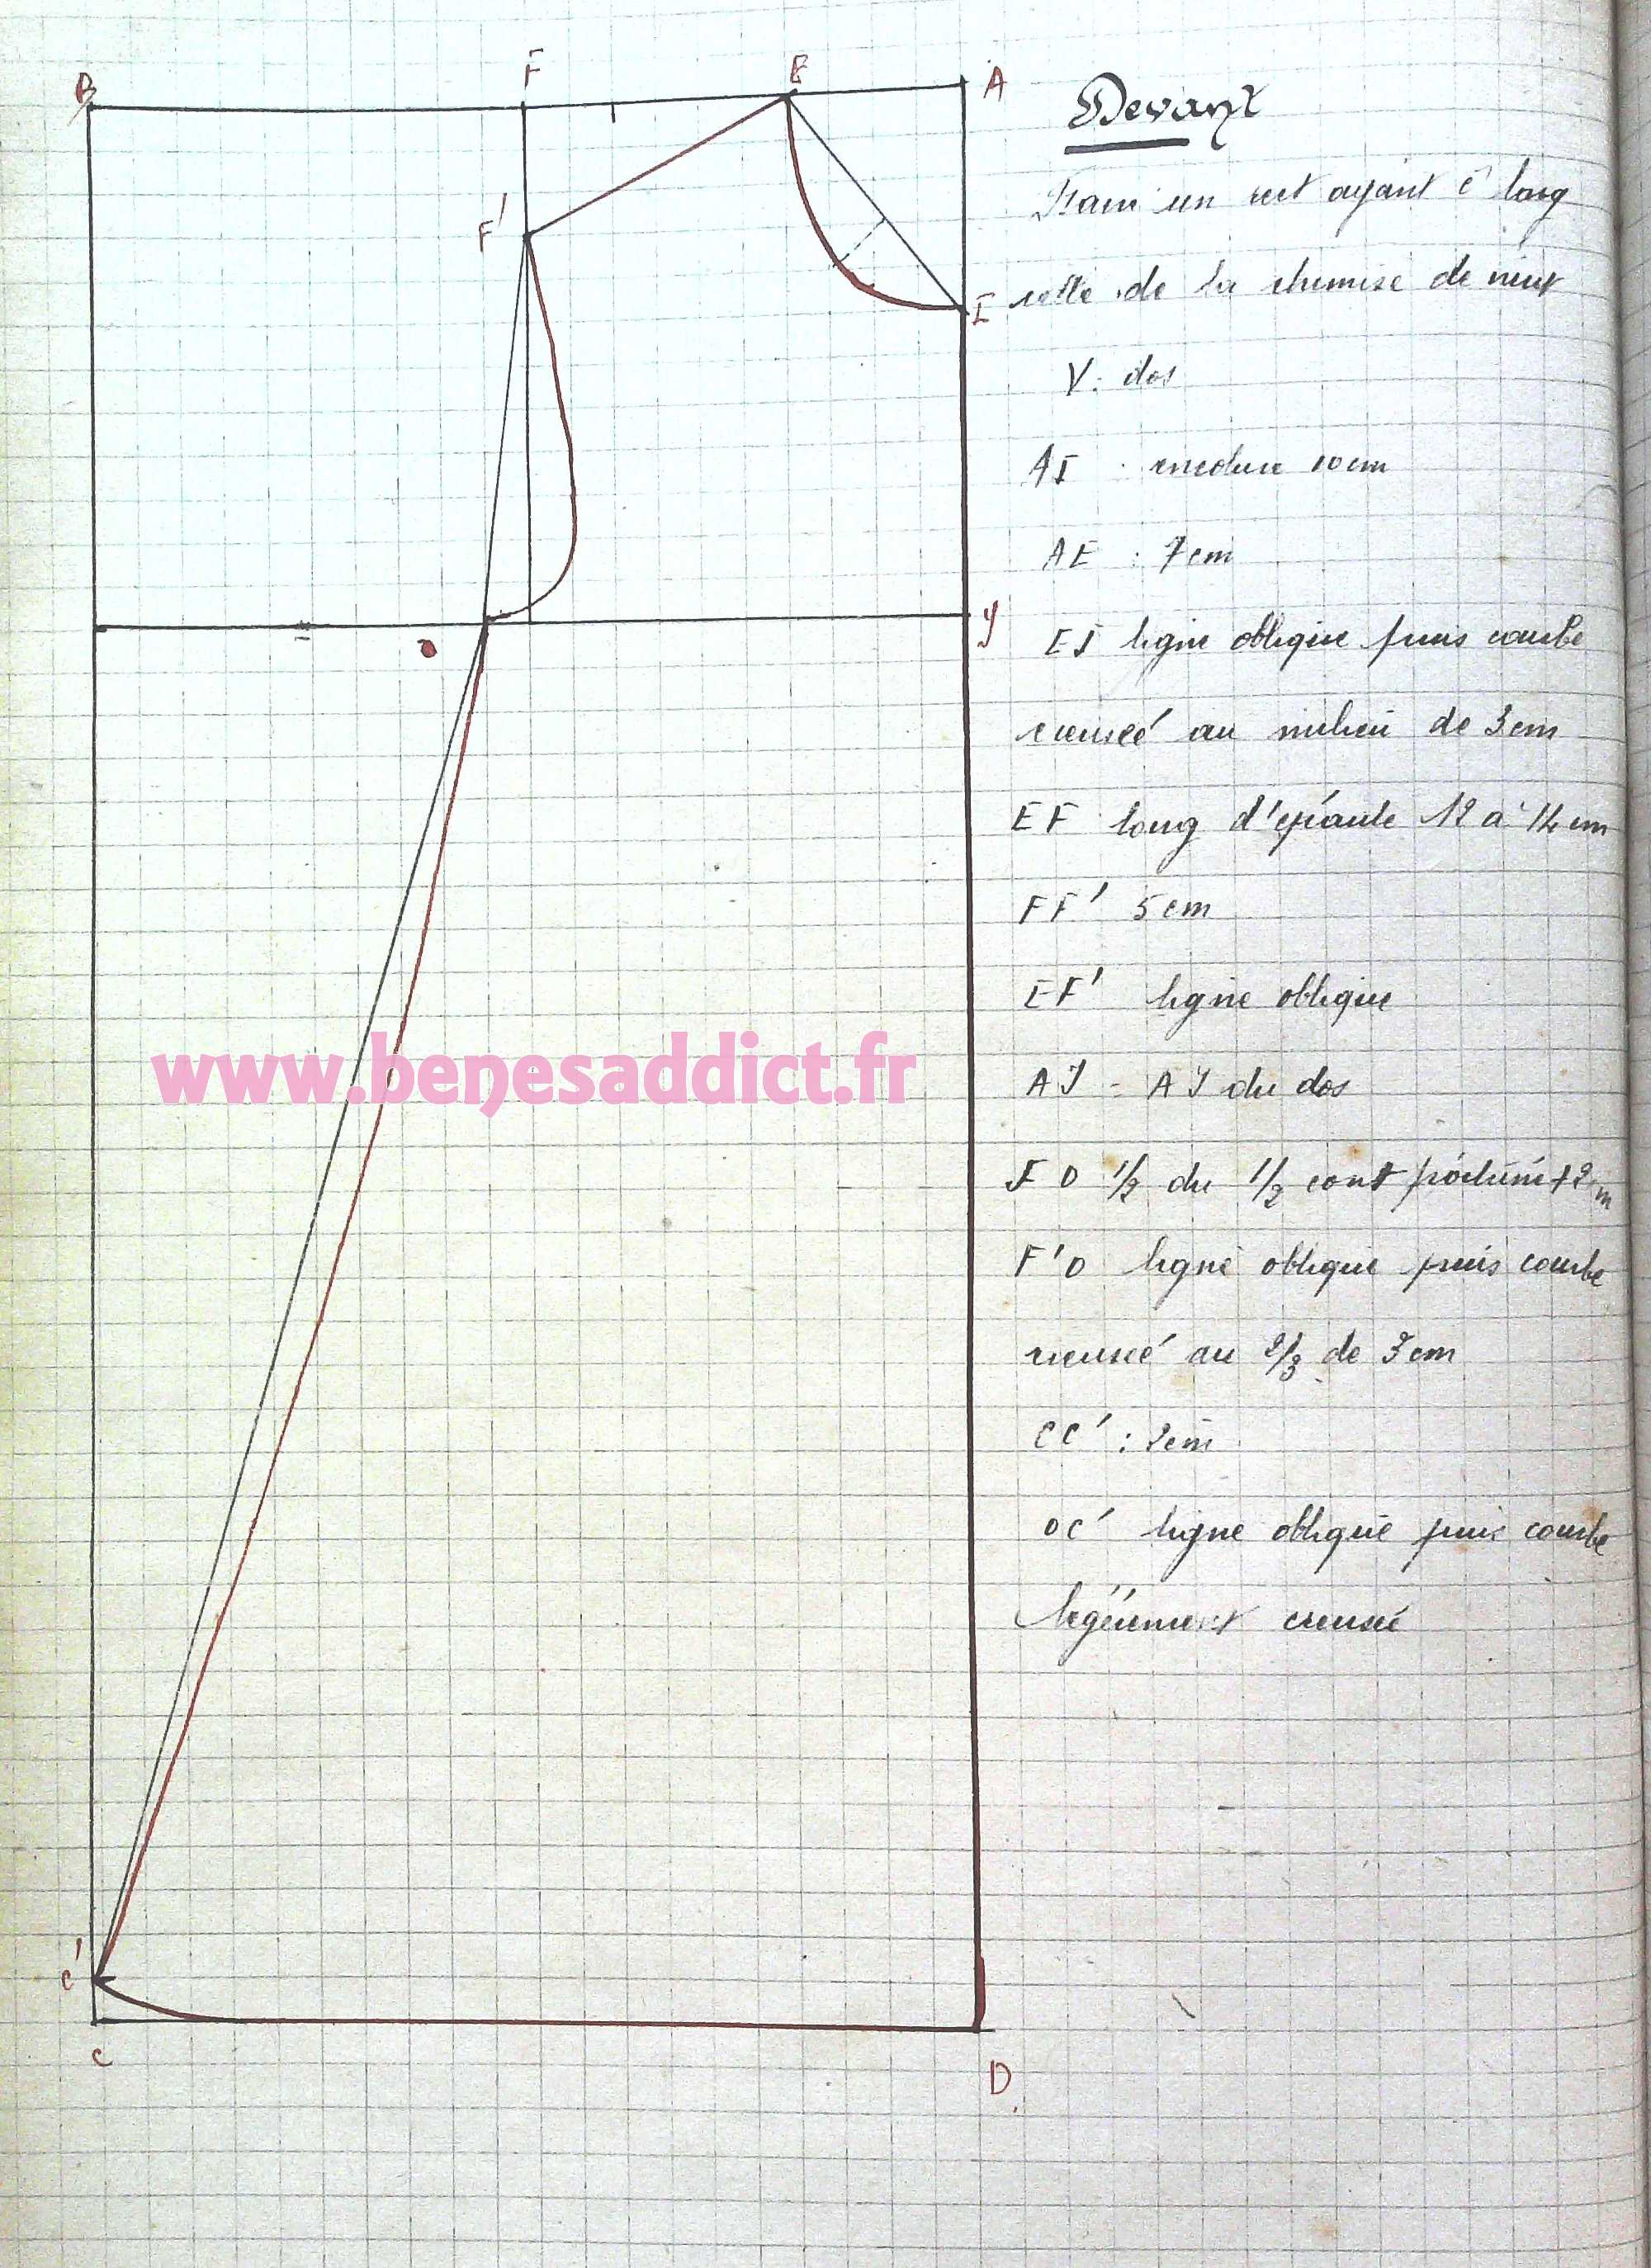 B
F
E
A
F'
I
O
J
www.benesaddict.fr
C'
C
D
Devant
un rect ayant c̄ long
celle de la chemise de nuit
V. dos
AI : encolure 10 cm
AE : 7 cm
EI ligne oblique puis courbe
creusée au milieu de 3 cm
EF long d'épaule 12 à 14 cm
FF' 5 cm
EF' ligne oblique
AJ = AJ du dos
JO 1/2 du 1/2 cont + 2
F'O ligne oblique puis courbe
creusée au 2/3 de 3 cm
CC' : 2 cm
OC' ligne oblique puis courbe
creusée